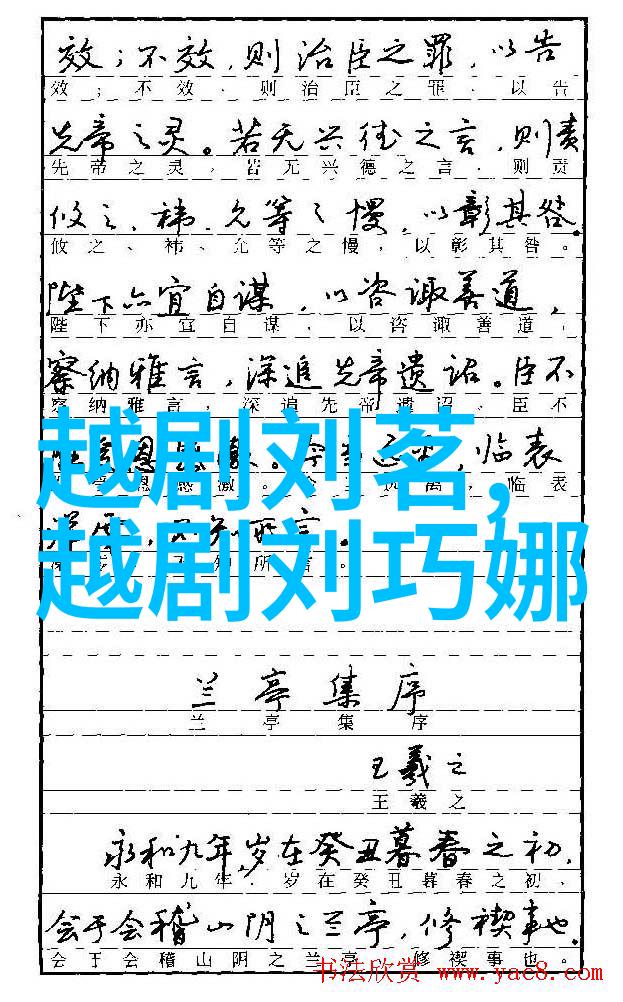 效；不效，则治臣之罪，以告
效；不效、则治臣之罪、以告
先帝之灵。若无兴德之言，则责
先帝之灵，若无兴德之言、则责
攸之、祎、允等之慢，以彰其咎。
攸之、祎、允等之慢，以彰其咎。
陛下亦宜自谋，以咨诹善道，
陛下亦宜自谋，以咨诹善道，
察纳雅言，深追先帝遗诏。臣不
察纳雅言，深追先帝遗诏。臣不
越剧刘茗，
恩感激。今当远离，临表
恩感激。今当远离，临表
越剧刘巧娜
所言。
知所言。
兰亭集序
兰亭集序
王羲之
王羲之
永和九年，岁在癸丑暮春之初，
永和九年，岁在癸丑暮春之初、
会于会稽山阴之兰亭，修禊事也。
会于会稽山阴之兰亭，修禊事也。
书法欣赏 www.yac8.com